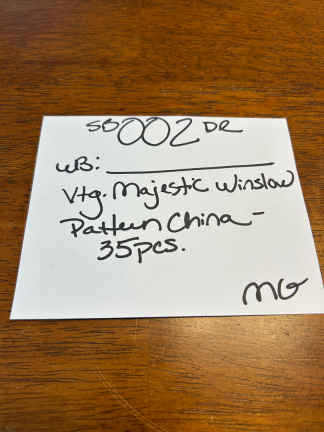 SB 002 DR
WB: ___________
Vtg. Majestic Winslow
Pattern China -
35pcs.
MG